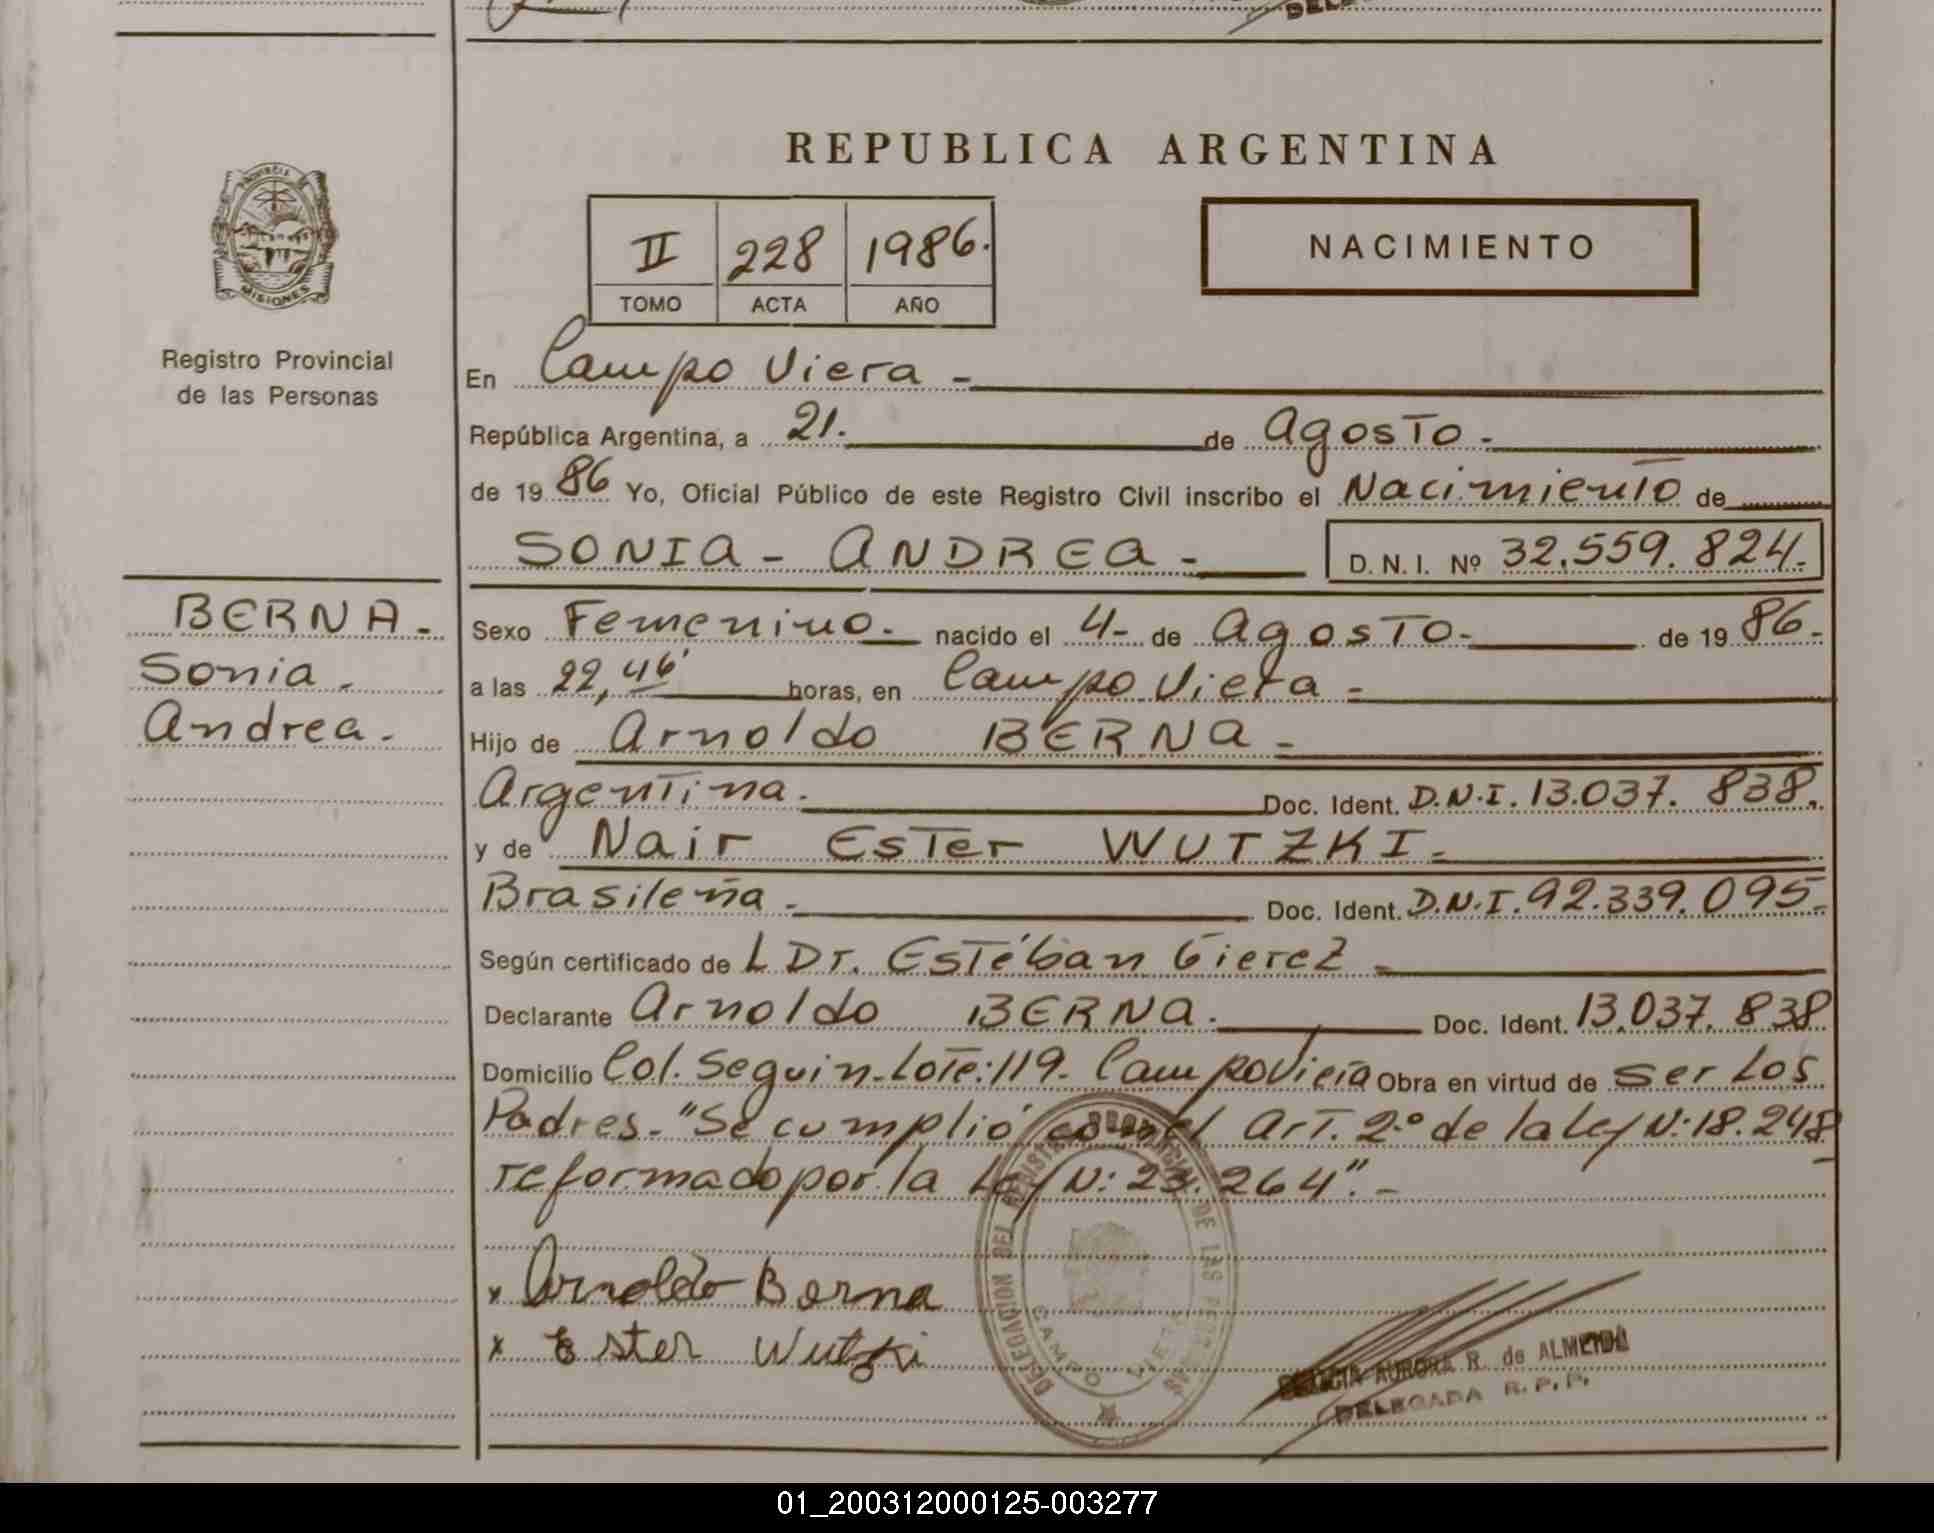 REPUBLICA ARGENTINA
PROVINCIA DE
MISIONES
Registro Provincial
de las Personas
II 228 1986.
TOMO ACTA AÑO
NACIMIENTO
En Campo Viera -
República Argentina, a 21. de Agosto -
de 19 86 Yo, Oficial Público de este Registro Civil inscribo el Nacimiento de
SONIA - ANDREA - D. N. I. Nº 32.559.824.-
BERNA -
Sonia -
Andrea -
Sexo Femenino.- nacido el 4- de Agosto- de 19 86-
a las 22,46' horas, en Campo Viera -
Hijo de Arnoldo BERNA -
Argentina. Doc. Ident. D.N.I. 13.037.838.
y de Nair Ester WUTZKI -
Brasileña - Doc. Ident. D.N.I. 92.339.095-
Según certificado de L Dr. Estéban Gierez -
Declarante Arnoldo BERNA. Doc. Ident. 13.037.838
Domicilio Col. Seguin-Lote:119- Campo Viera Obra en virtud de ser los
Padres- "Se cumplió con el Art. 2º de la Ley N: 18.248
reformado por la Ley N: 23.264".-
x Arnoldo Berna
x Ester Wutzki
DELEGACION DEL REGISTRO PROVINCIAL DE LAS PERSONAS
CAMPO VIERA
AURORA R. de ALMEIDA
DELEGADA R.P.P.
01_200312000125-003277